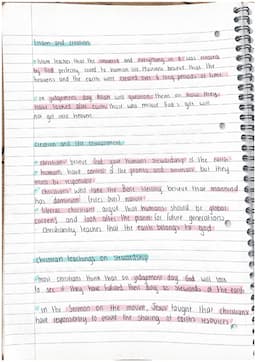 Islam and creation
Islam teaches that the universe and everything in it was created
by God perfectly suited to human life. Muslims believe that the
heavens and the earth were created over 6 long periods of time.
on judgement day Allah will question them on how they
have looked after
go into heaven
Christian and the environment
Christians believe God gave humans stewardship of the earth
humans have control of the plants and animals but they
must be responsible
Christians who take the Bible literally believe that mankind
has dominion (rules over) nature
liberal christians argue that humans should be global
citizens and look after the planet for future generations
Christianity teaches that the earth belongs to god
Christian teachings on stewardship
most christians think that on judgement day God will look
to see if they have fulfilled their duty as stewards of the earth
in the Sermon on the mount, Jesus taught that christians
have responsibility to ensure the sharing of earth's resources